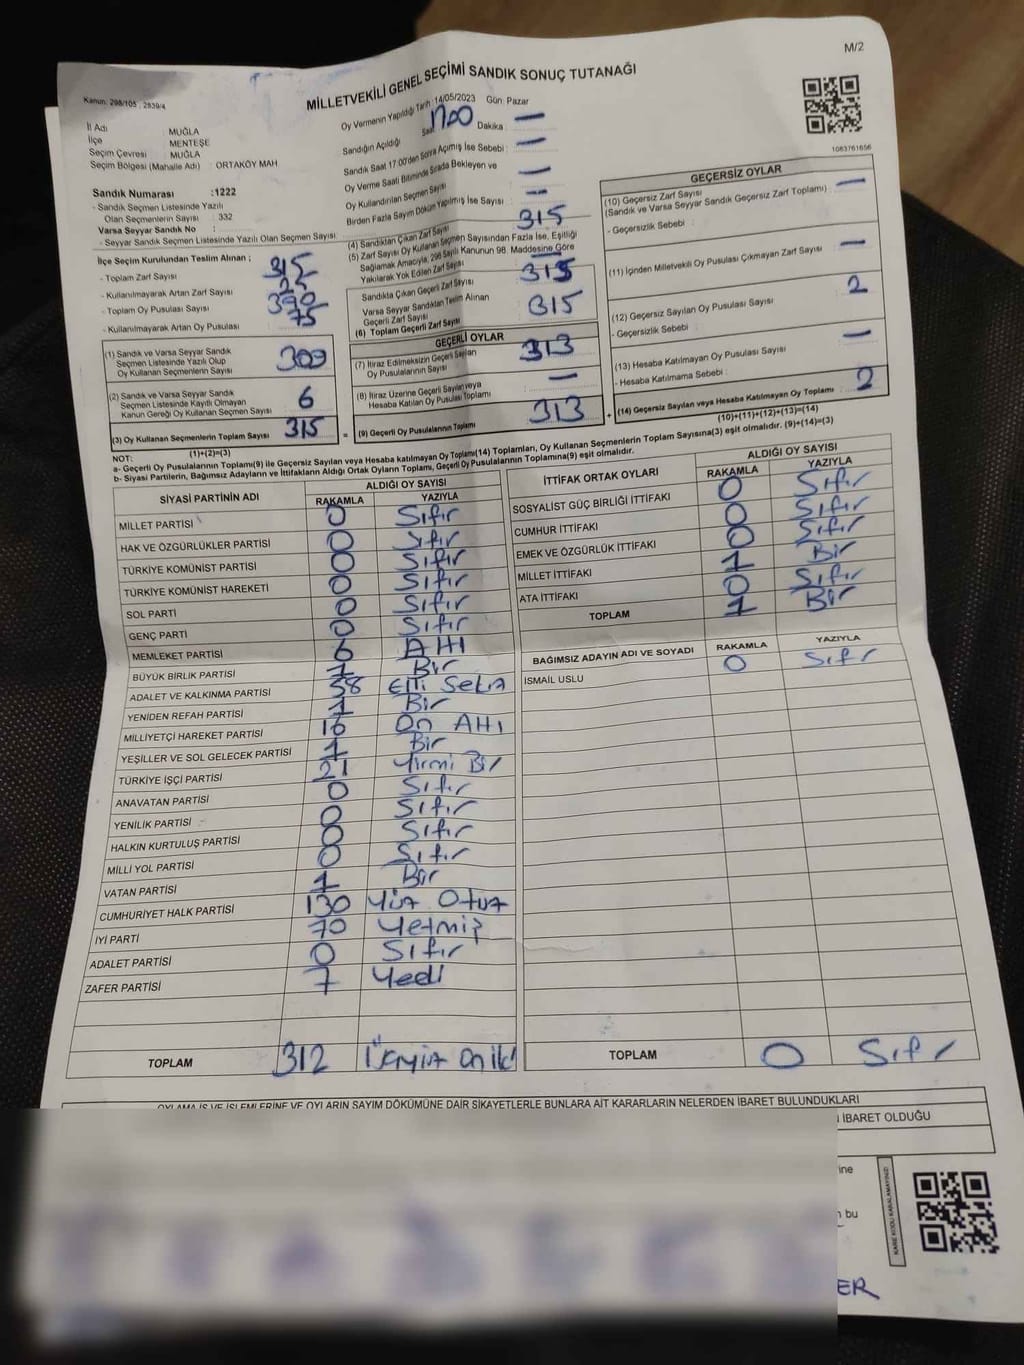 M/2
Kanun: 298/105 , 2839/4
MİLLETVEKİLİ GENEL SEÇİMİ SANDIK SONUÇ TUTANAĞI
1083761656
İl Adı : MUĞLA
İlçe : MENTEŞE
Seçim Çevresi : MUĞLA
Seçim Bölgesi (Mahalle Adı) : ORTAKÖY MAH
Sandık Numarası :1222
- Sandık Seçmen Listesinde Yazılı
Olan Seçmenlerin Sayısı : 332
Varsa Seyyar Sandık No :
- Seyyar Sandık Seçmen Listesinde Yazılı Olan Seçmen Sayısı
Oy Vermenin Yapıldığı Tarih :14/05/2023 Gün: Pazar
Sandığın Açıldığı Saat 17.00 Dakika : —
Sandık Saat 17:00'den Sonra Açılmış İse Sebebi : —
Oy Verme Saati Bitiminde Sırada Bekleyen ve
Oy Kullandırılan Seçmen Sayısı —
Birden Fazla Sayım Döküm Yapılmış İse Sayısı : —
İlçe Seçim Kurulundan Teslim Alınan ;
- Toplam Zarf Sayısı
- Kullanılmayarak Artan Zarf Sayısı
- Toplam Oy Pusulası Sayısı 390
- Kullanılmayarak Artan Oy Pusulası 75
(1) Sandık ve Varsa Seyyar Sandık
Seçmen Listesinde Yazılı Olup
Oy Kullanan Seçmenlerin Sayısı 309
(2) Sandık ve Varsa Seyyar Sandık
Seçmen Listesinde Kayıtlı Olmayan
Kanun Gereği Oy Kullanan Seçmen Sayısı 6
(3) Oy Kullanan Seçmenlerin Toplam Sayısı 315
(1)+(2)=(3)
(4) Sandıktan Çıkan Zarf Sayısı 315
(5) Zarf Sayısı Oy Kullanan Seçmen Sayısından Fazla İse, Eşitliği
Sağlamak Amacıyla, 298 Sayılı Kanunun 98. Maddesine Göre
Yakılarak Yok Edilen Zarf Sayısı —
Sandıkta Çıkan Geçerli Zarf Sayısı 315
Varsa Seyyar Sandıktan Teslim Alınan
Geçerli Zarf Sayısı
(6) Toplam Geçerli Zarf Sayısı 315
GEÇERLİ OYLAR
(7) İtiraz Edilmeksizin Geçerli Sayılan
Oy Pusulalarının Sayısı 313
(8) İtiraz Üzerine Geçerli Sayılan veya
Hesaba Katılan Oy Pusulası Toplamı —
= (9) Geçerli Oy Pusulalarının Toplamı 313
GEÇERSİZ OYLAR
(10) Geçersiz Zarf Sayısı
(Sandık ve Varsa Seyyar Sandık Geçersiz Zarf Toplamı) —
- Geçersizlik Sebebi :
(11) İçinden Milletvekili Oy Pusulası Çıkmayan Zarf Sayısı —
(12) Geçersiz Sayılan Oy Pusulası Sayısı 2
- Geçersizlik Sebebi :
(13) Hesaba Katılmayan Oy Pusulası Sayısı —
- Hesaba Katılmama Sebebi :
+ (14) Geçersiz Sayılan veya Hesaba Katılmayan Oy Toplamı 2
(10)+(11)+(12)+(13)=(14)
NOT:
a- Geçerli Oy Pusulalarının Toplamı(9) ile Geçersiz Sayılan veya Hesaba katılmayan Oy Toplamı(14) Toplamları, Oy Kullanan Seçmenlerin Toplam Sayısına(3) eşit olmalıdır. (9)+(14)=(3)
b- Siyasi Partilerin, Bağımsız Adayların ve İttifakların Aldığı Ortak Oyların Toplamı, Geçerli Oy Pusulalarının Toplamına(9) eşit olmalıdır.
SİYASİ PARTİNİN ADI ALDIĞI OY SAYISI
RAKAMLA YAZIYLA
MİLLET PARTİSİ 0 Sıfır
HAK VE ÖZGÜRLÜKLER PARTİSİ 0 Sıfır
TÜRKİYE KOMÜNİST PARTİSİ 0 Sıfır
TÜRKİYE KOMÜNİST HAREKETİ 0 Sıfır
SOL PARTİ 0 Sıfır
GENÇ PARTİ 0 Sıfır
MEMLEKET PARTİSİ 6 Altı
BÜYÜK BİRLİK PARTİSİ 1 Bir
ADALET VE KALKINMA PARTİSİ 58 Elli Sekiz
YENİDEN REFAH PARTİSİ 1 Bir
MİLLİYETÇİ HAREKET PARTİSİ 16 On Altı
YEŞİLLER VE SOL GELECEK PARTİSİ 1 Bir
TÜRKİYE İŞÇİ PARTİSİ 21 Yirmi Bir
ANAVATAN PARTİSİ 0 Sıfır
YENİLİK PARTİSİ 0 Sıfır
HALKIN KURTULUŞ PARTİSİ 0 Sıfır
MİLLİ YOL PARTİSİ 0 Sıfır
VATAN PARTİSİ 1 Bir
CUMHURİYET HALK PARTİSİ 130 Yüz Otuz
İYİ PARTİ 70 Yetmiş
ADALET PARTİSİ 0 Sıfır
ZAFER PARTİSİ 7 Yedi
TOPLAM 312 Üçyüz on iki
İTTİFAK ORTAK OYLARI ALDIĞI OY SAYISI
RAKAMLA YAZIYLA
SOSYALİST GÜÇ BİRLİĞİ İTTİFAKI 0 Sıfır
CUMHUR İTTİFAKI 0 Sıfır
EMEK VE ÖZGÜRLÜK İTTİFAKI 0 Sıfır
MİLLET İTTİFAKI 1 Bir
ATA İTTİFAKI 0 Sıfır
TOPLAM 1 Bir
BAĞIMSIZ ADAYIN ADI VE SOYADI RAKAMLA YAZIYLA
ISMAIL USLU 0 Sıfır
TOPLAM 0 Sıfır
OYLAMA İŞ VE İŞLEMLERİNE VE OYLARIN SAYIM DÖKÜMÜNE DAİR ŞİKAYETLERLE BUNLARA AİT KARARLARIN NELERDEN İBARET BULUNDUKLARI
İBARET OLDUĞU
ine
bu
KARE KODU KARALAMAYINIZ!
ER